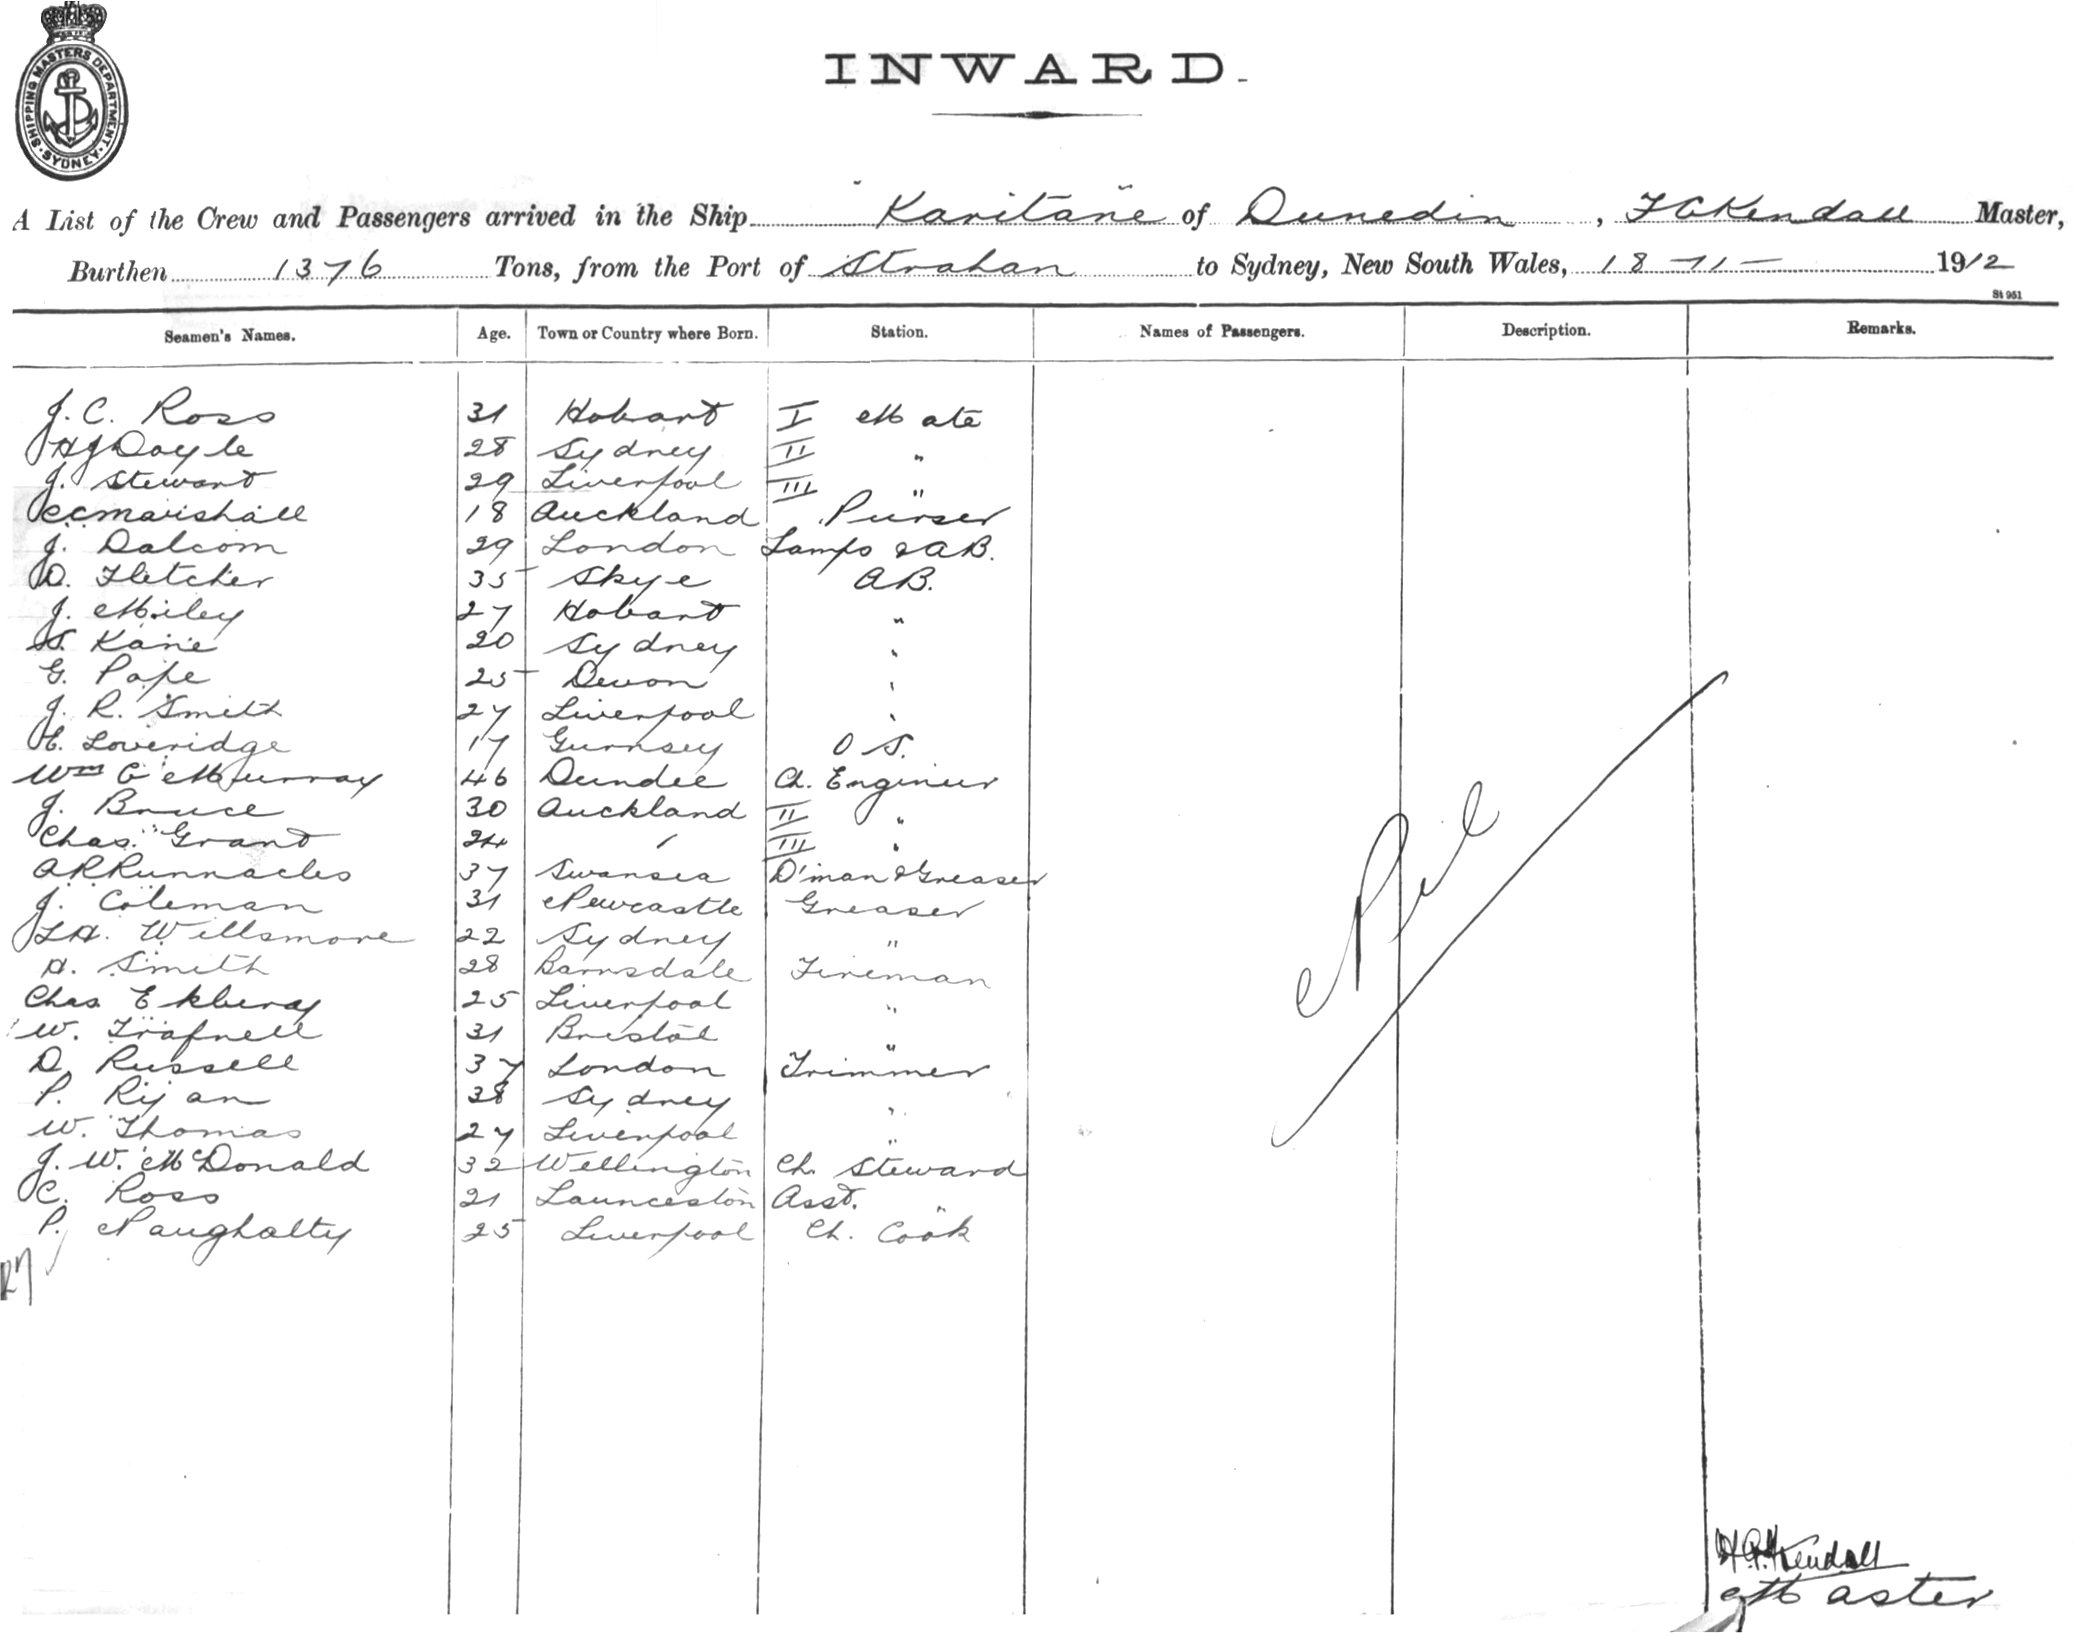 SHIPPING MASTERS DEPARTMENT
SYDNEY
INWARD.
A List of the Crew and Passengers arrived in the Ship "Karitane" of Dunedin, F G Kendall Master,
Burthen 1376 Tons, from the Port of Strahan to Sydney, New South Wales, 18-11- 1912
St 951
Seamen's Names. Age. Town or Country where Born. Station. Names of Passengers. Description. Remarks.
J. C. Ross 31 Hobart I Mate
H J Doyle 28 Sydney II "
J. Stewart 29 Liverpool III "
C C Marshall 18 Auckland Purser
J. Dalcom 29 London Lamps & AB.
D. Fletcher 35 Skye AB.
J. Miley 27 Hobart "
S. Kane 20 Sydney "
G. Pope 25 Devon "
J. R. Smith 27 Liverpool "
C. Loveridge 17 Gurnsey O S.
Wm G Murray 46 Dundee Ch. Engineer
J. Bruce 30 Auckland II "
Chas. Grant 24 " III "
A R Runnacles 37 Swansea D'man & Greaser
J. Coleman 31 Newcastle Greaser
L H. Willsmore 22 Sydney "
H. Smith 28 Barnsdale Fireman
Chas Ekberg 25 Liverpool "
W. Trapnell 31 Bristol "
D. Russell 37 London Trimmer
P. Ryan 38 Sydney "
W. Thomas 27 Liverpool "
J. W. McDonald 32 Wellington Ch. Steward
C. Ross 21 Launceston Asst. "
P. Naughalty 25 Liverpool Ch. Cook
Nil
Kendall
Master